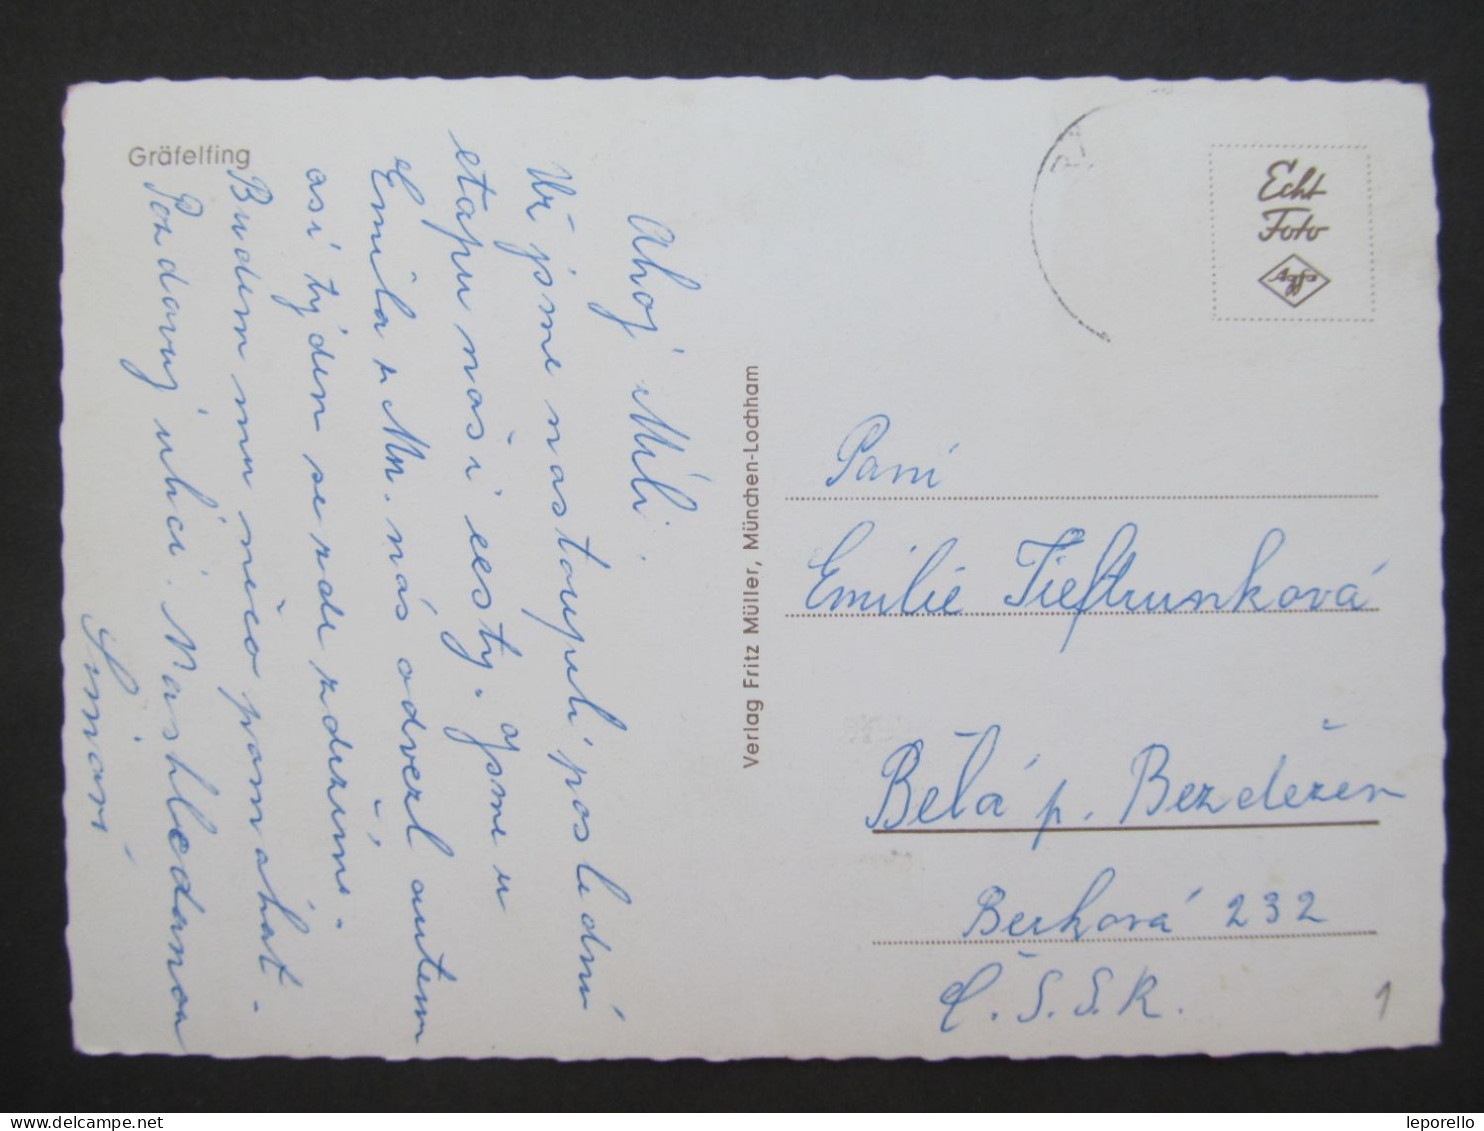 Gräfelfing
Ahoj Mili.
Už jsme nastoupili poslední
etapu naší cesty. Jsme u
Emila z Mn. nás odvezl autem
asi týden se zde zdržíme.
Budem mu něco pomáhat.
Pozdravuj ulici. Nashledanou
Verlag Fritz Müller, München-Lochham
Echt
Foto
Agfa
Paní
Emilie Tieftrunková
Bělá p. Bezdězem
Berková 232
Č.S.S.R.
1
leporello